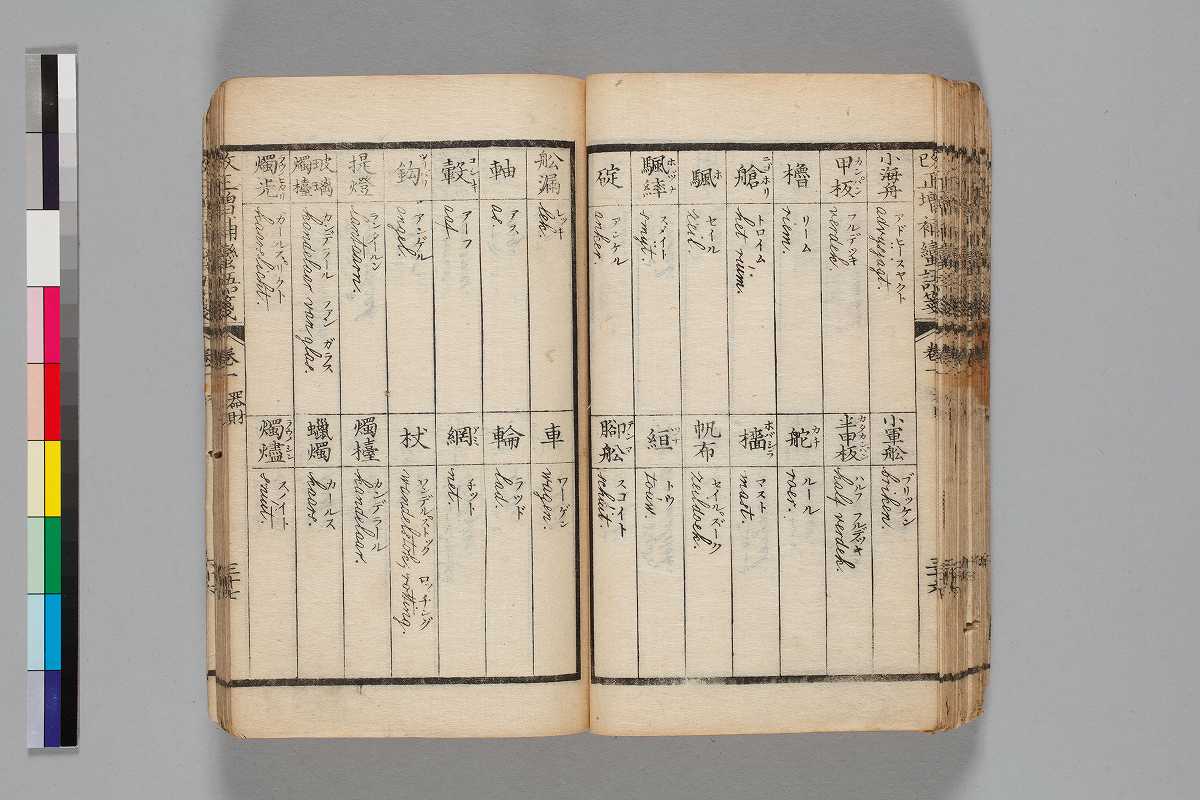 小海舟
アドヒースヤクト
advysjagt.
甲板
カンパン
フルデッキ
verdek.
櫓
リーム
riem.
艙
トロイム
het ruim.
颿
ホ
セイル
zeil.
颿縴
ホヅナ
スメイト
smyt.
碇
アンケル
anker.
小軍舩
ブリッケン
briken.
半甲板
カタカンパン
ハルフ フルデッキ
half verdek.
舵
カヂ
ルール
roer.
檣
ホバシラ
マスト
mast.
帆布
セイルヅーク
zeildoek.
絙
トウ
touw.
腳舩
スコイト
schuit.
舩漏
レッキ
lek.
軸
アス
as.
轂
コシキ
アーフ
aas.
鈎
ツリバリ
アンゲル
angel.
提燈
ランターレン
lantaarn.
玻璃燭檯
カンデラール ファン ガラス
kandelaar van glas.
燭光
カールスリクト
kaarslicht.
車
ワーゲン
wagen.
輪
ラット
lad.
網
アミ
ネット
net.
杖
ワンデルストック ロッチング
wandelstok, rotting.
燭檯
カンデラール
kandelaar.
蠟燭
カールス
kaars.
燭燼
スノイト
snuit.
改正增補蠻語箋
卷一
器財
三十七